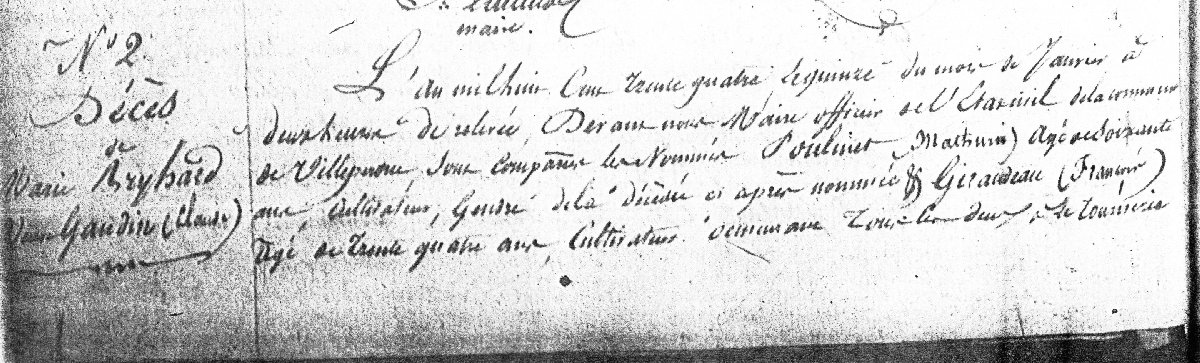 maire.
N° 2
Décès
de
Marie Bryhard
Veuve Gaudin (Louis)
L'an mil huit Cent trente quatre, le quinze du mois de Janvier à
deux heures de relevée, Devant nous Maire officier de l'Etat civil de la commune
de Villeperdue sont comparus les Nommés Poulinet (Mathurin) Agé de Soixante
ans, Cultivateur, Gendre de la décédée ci après nommée & Girandeau (François)
Agé de trente quatre ans, Cultivateur demeurant tous les deux, à la